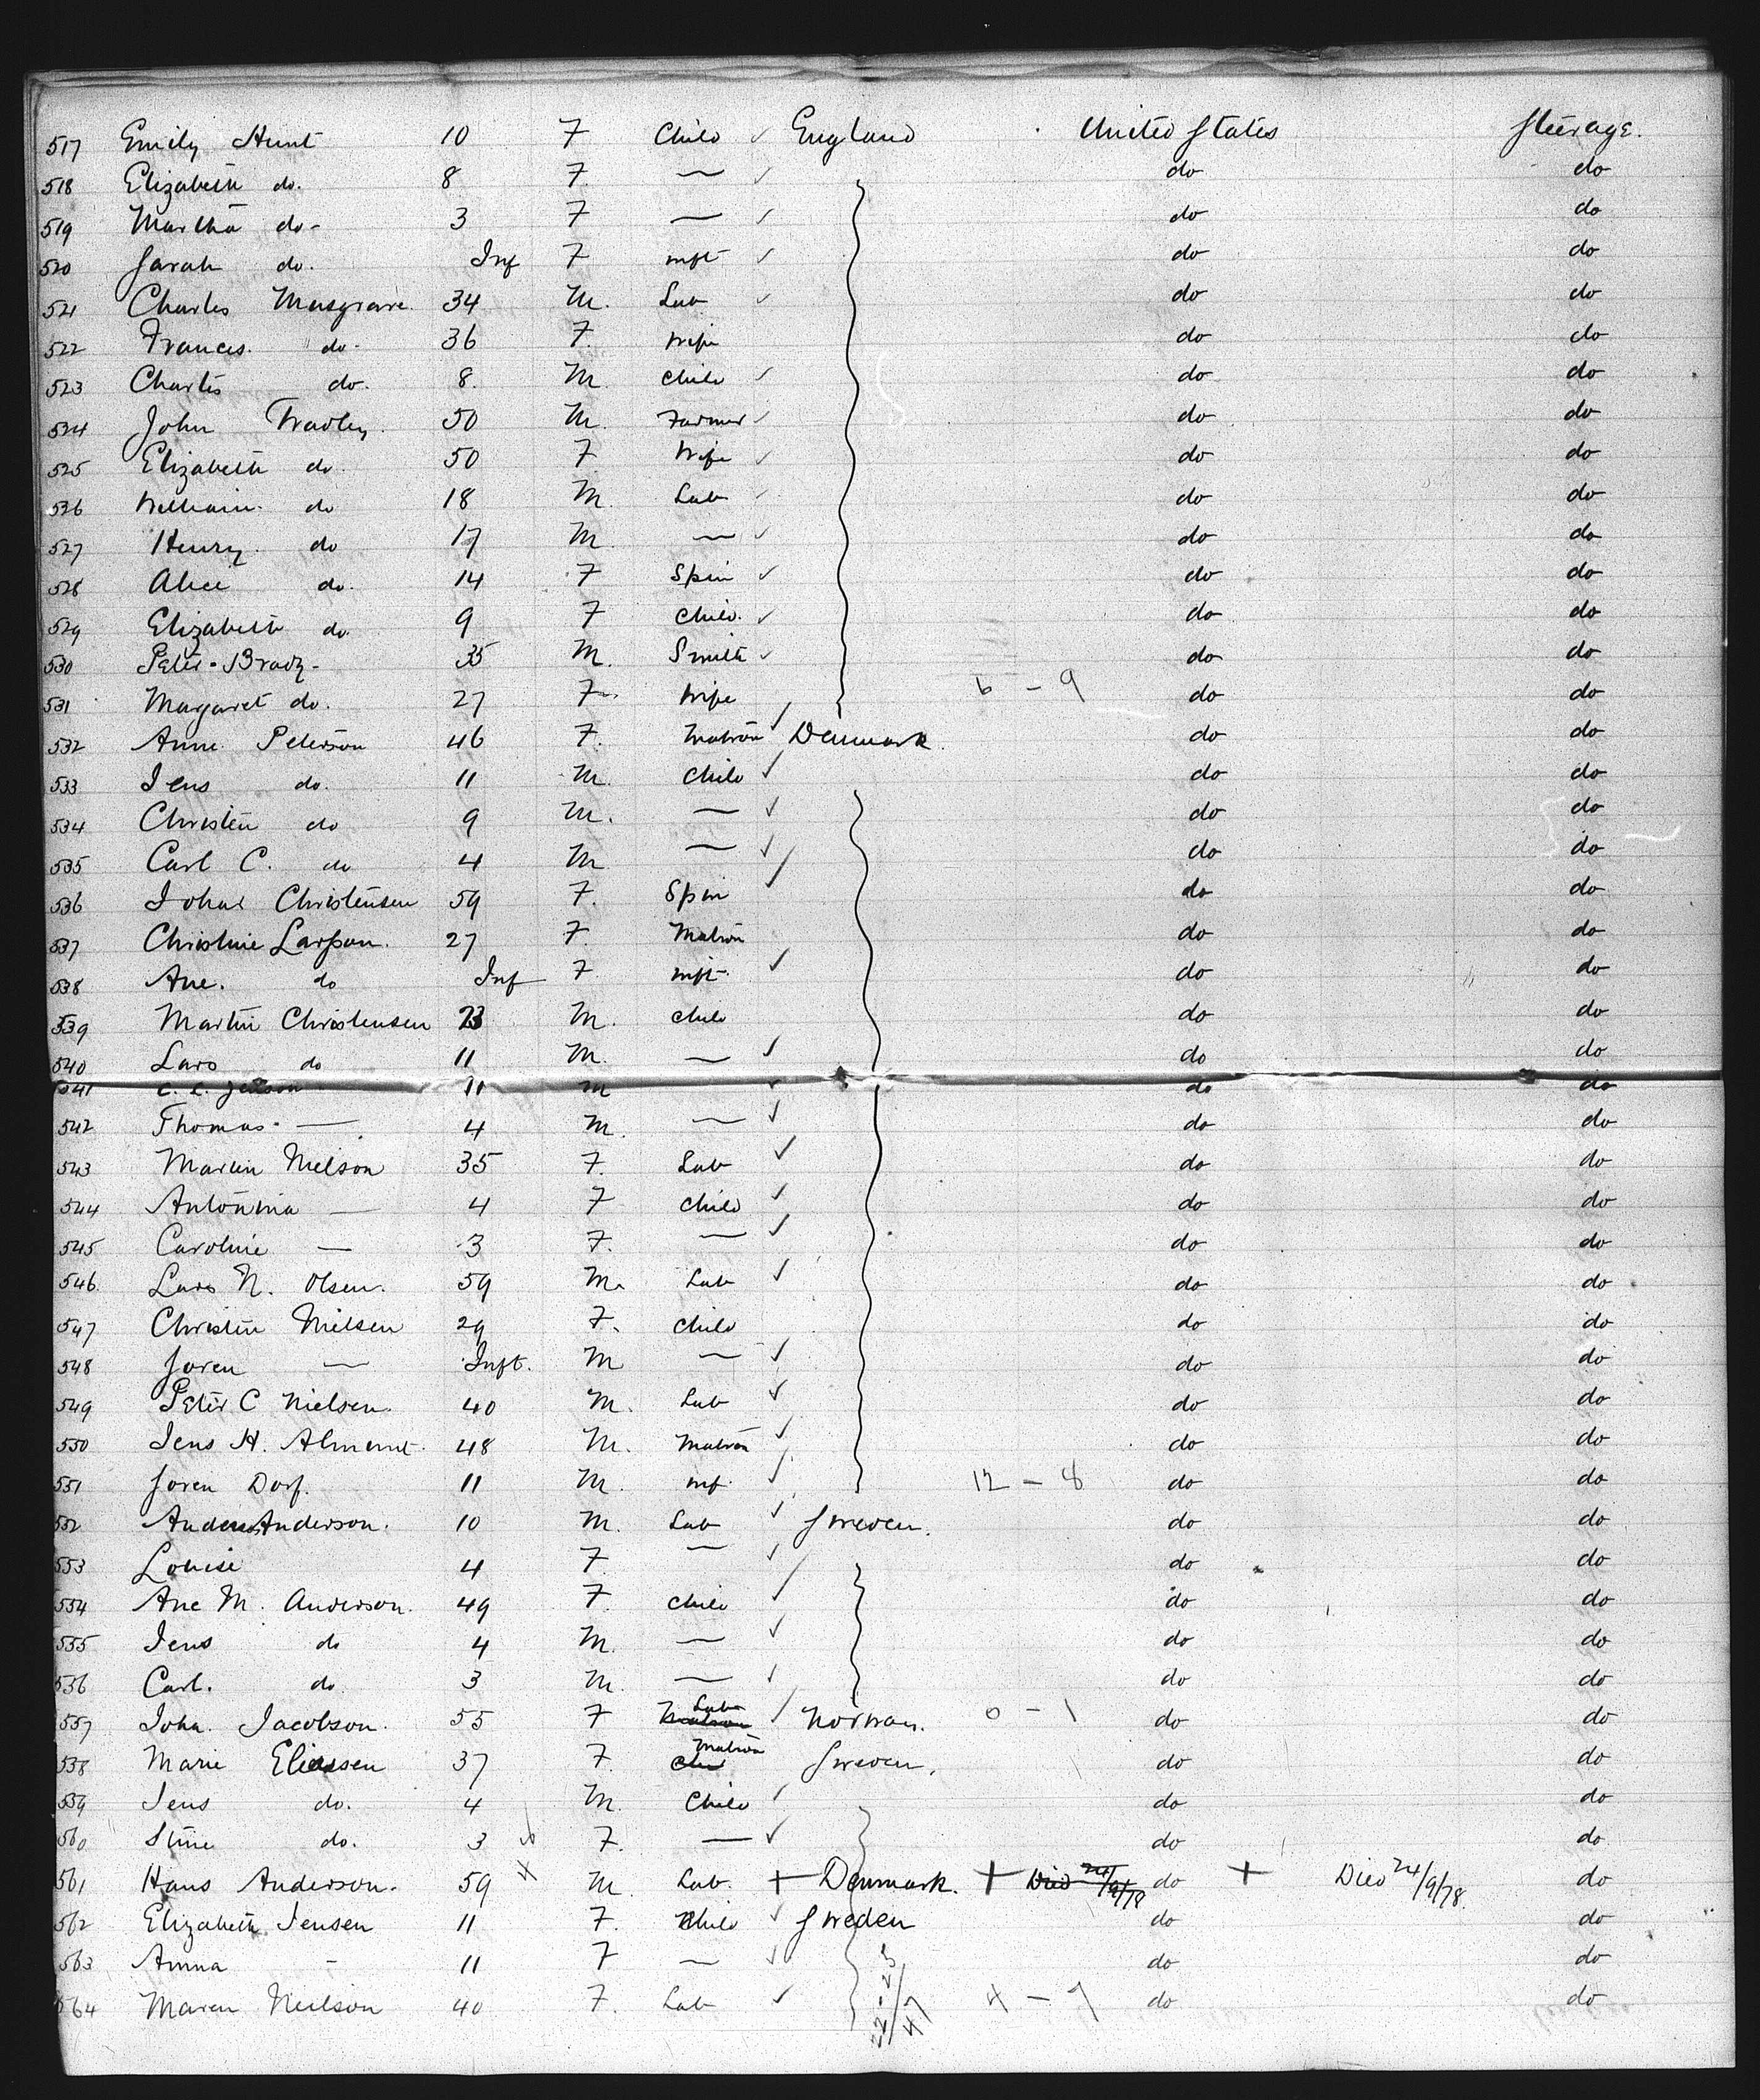 517 Emily Hunt 10 F Child ✓ England United States Steerage.
518 Elizabeth do. 8 F. — ✓ do do
519 Martha do- 3 F — ✓ do do
520 Sarah do. Inf F inft ✓ do do
521 Charles Musgrave. 34 M. Lab ✓ do do
522 Frances. do- 36 F. Wife do do
523 Charles do. 8. M. Child ✓ do do
524 John 50 M. Farmer ✓ do do
525 Elizabeth do 50 F Wife ✓ do do
526 William. do 18 M. Lab ✓ do do
527 Henry. do 17 M — ✓ do do
528 Alice do. 14 F Spin ✓ do do
529 Elizabeth do. 9 F Child. ✓ do do
530 Peter Brady- 35 M. Smith ✓ do do
531 Margaret do. 27 F Wife 6 - 9 do do
532 Anne Peterson 46 F. Matron ✓ Denmark. do do
533 Jens do. 11 M. Child ✓ do do
534 Christen do 9 M. — ✓ do do
535 Carl C. do 4 M — ✓ do do
536 Christensen 59 F. Spin ✓ do do
537 Christine Larson. 27 F. Matron do do
538 Ane. do Inf F inft- ✓ do do
539 Martin Christensen 23 M. Child do do
540 Lars do 11 M. — ✓ do do
541 11 M ✓ do do
542 Thomas — 4 M. — ✓ do do
543 Maren Nielson 35 F. Lab ✓ do do
544 Antonina — 4 F Child ✓ do do
545 Caroline — 3 F. — ✓ do do
546. Lars N. Olsen. 59 M. Lab ✓ do do
547 Christine Nielsen 29 F. Child do do
548 Soren — Inft. M — ✓ do do
549 Peter C Nielsen. 40 M. Lab ✓ do do
550 Jens H. 48 M. Matron ✓ do do
551 Soren Dorf. 11 M. inf. ✓ 12 - 8 do do
552 Anders Anderson. 10 M. Lab ✓ Sweden. do do
553 Louise 4 F. — ✓ do do
554 Ane M. Anderson. 49 F. Child ✓ do do
555 Jens do 4 M. — ✓ do do
556 Carl. do. 3 M. — ✓ do do
557 Joha. Jacobson. 55 F Matron Lab ✓ Norway. 0 - 1 do do
558 Marie Eliassen 37 F. Child Matron Sweden. do do
559 Jens do. 4 M. Child ✓ do do
560 Stine do. 3 F. — ✓ do do
561 Hans Anderson. 59 M. Lab. + Denmark. + Died 24/9/78 do + Died 24/9/78. do
562 Elizabeth Jensen 11 F. Child ✓ Sweden do do
563 Anna - 11 F — ✓ do do
564 Maren Neilson 40 F. Lab ✓ 22-25/47 4 - 7 do do